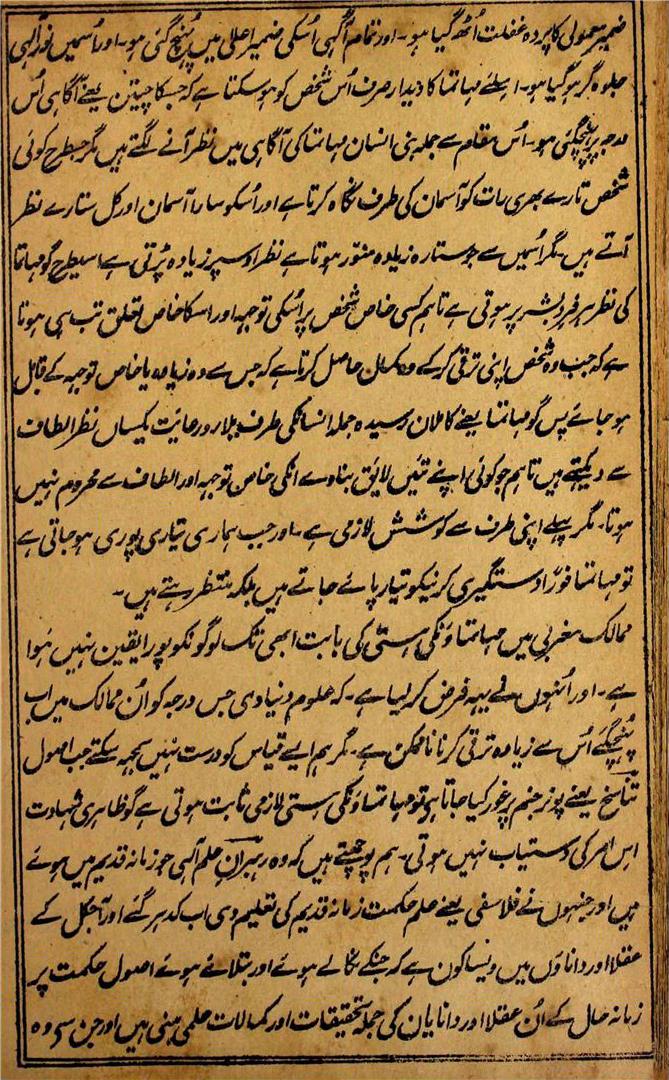 ضمیر معمولی کا پردہ غفلت اُٹھ گیا ہو۔ اور تمام آگہی اُسکی ضمیر اعلیٰ میں پُہنچ گئی ہو۔ اور اُسمیں نور آلہی
جلوہ گر ہو گیا ہو۔ اسلئے مہاتما کا دیدار صرف اُس شخص کو ہو سکتا ہے کہ جسکا چیتن یعنے آگاہی اُس
درجہ پر پہنچگئی ہو۔ اُس مقام سے جملہ بنی انسان مہاتما کی آگاہی میں نظر آنے لگتے ہیں مگر جسطرح کوئی
شخص تارے بھری رات کو آسمان کی طرف نگاہ کرتا ہے اور اُسکو سارا آسمان اور کل ستارے نظر
آتے ہیں۔ مگر اُسمیں سے جو ستارہ زیادہ منور ہوتا ہے نظر اوسپر زیادہ پڑتی ہے اسیطرح گو مہاتما
کی نظر ہر فرد بشر پر ہوتی ہے تاہم کسی خاص شخص پر اُسکی توجہ اور اسکا خاص تعلق تب ہی ہوتا
ہے کہ جب وہ شخص اپنی ترقی کر کے وہ کمال حاصل کرتا ہے کہ جس سے وہ زیادہ یا خاص توجہ کے قابل
ہو جائے پس گو مہاتما یعنے کاملان رسیدہ جملہ انسانکی طرف بلا رو رعایت یکساں نظر الطاف
سے دیکہتے ہیں تاہم جو کوئی اپنے تئیں لایق بناوے انکی خاص توجہ اور الطاف سے محروم نہیں
ہوتا۔ مگر پہلے اپنی طرف سے کوشش لازمی ہے۔ اور جب ہماری تیاری پوری ہو جاتی ہے
تو مہاتما فوراً دستگیری کرنیکو تیار پائے جاتے ہیں بلکہ منتظر رہتے ہیں۔
ممالک مغربی میں مہاتماؤنکی ہستی کی بابت ابھی تک لوگونکو پورا یقین نہیں ہُوا
ہے۔ اور اُنہوں نے یہہ فرض کر لیا ہے۔ کہ علوم دنیاوی جس درجہ کو اُن ممالک میں اب
پُہنچگئے اُس سے زیادہ ترقی کرنا ناممکن ہے۔ مگر ہم ایسے قیاس کو درست نہیں سمجہہ سکتے جب اصول
تناسخ یعنے پونر جنم پر غور کیا جاتا ہے تو مہاتماؤنکی ہستی لازمی ثابت ہوتی ہے گو ظاہری شہادت
اس امر کی دستیاب نہیں ہوتی۔ ہم پوچہتے ہیں کہ وہ رہبرانِ علم آلہی جو زمانہ قدیم میں ہوئے
ہیں اور جنہوں نے فلاسفی یعنے علم حکمت زمانہ قدیم کی تعلیم دی اب کدہر گئے اور آجکل کے
عقلا اور داناؤں میں ویسا کون ہے کہ جنکے نکالے ہوئے اور بتلائے ہوئے اصول حکمت پر
زمانہ حال کے اُن عقلا اور دانایان کی جملہ تحقیقات اور کمالات علمی مبنی ہیں اور جن سے وہ